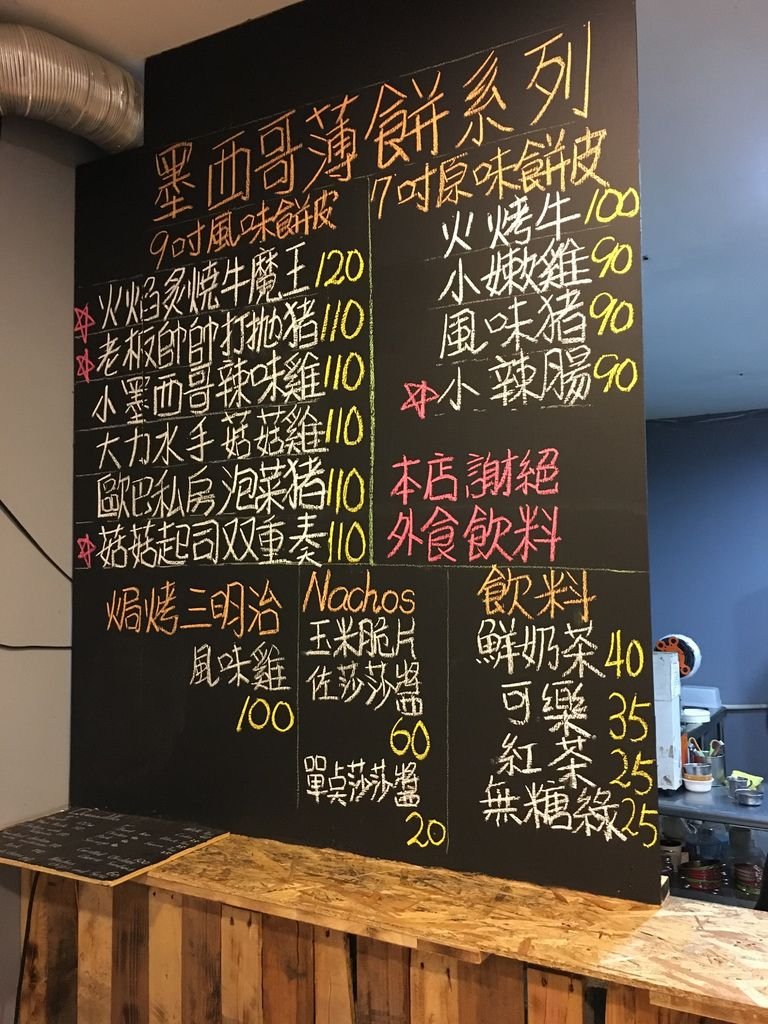 墨西哥薄餅系列
9吋風味餅皮
火焰炙燒牛魔王120
老板帥帥打拋豬110
小墨西哥辣味雞110
大力水手菇菇雞110
歐巴私房泡菜豬110
菇菇起司双重奏110
7吋原味餅皮
火烤牛100
小嫩雞90
風味豬90
小辣腸90
本店謝絕
外食飲料
焗烤三明治
風味雞
100
Nachos
玉米脆片
佐莎莎醬
60
單點莎莎醬
20
飲料
鮮奶茶40
可樂35
紅茶25
無糖綠25